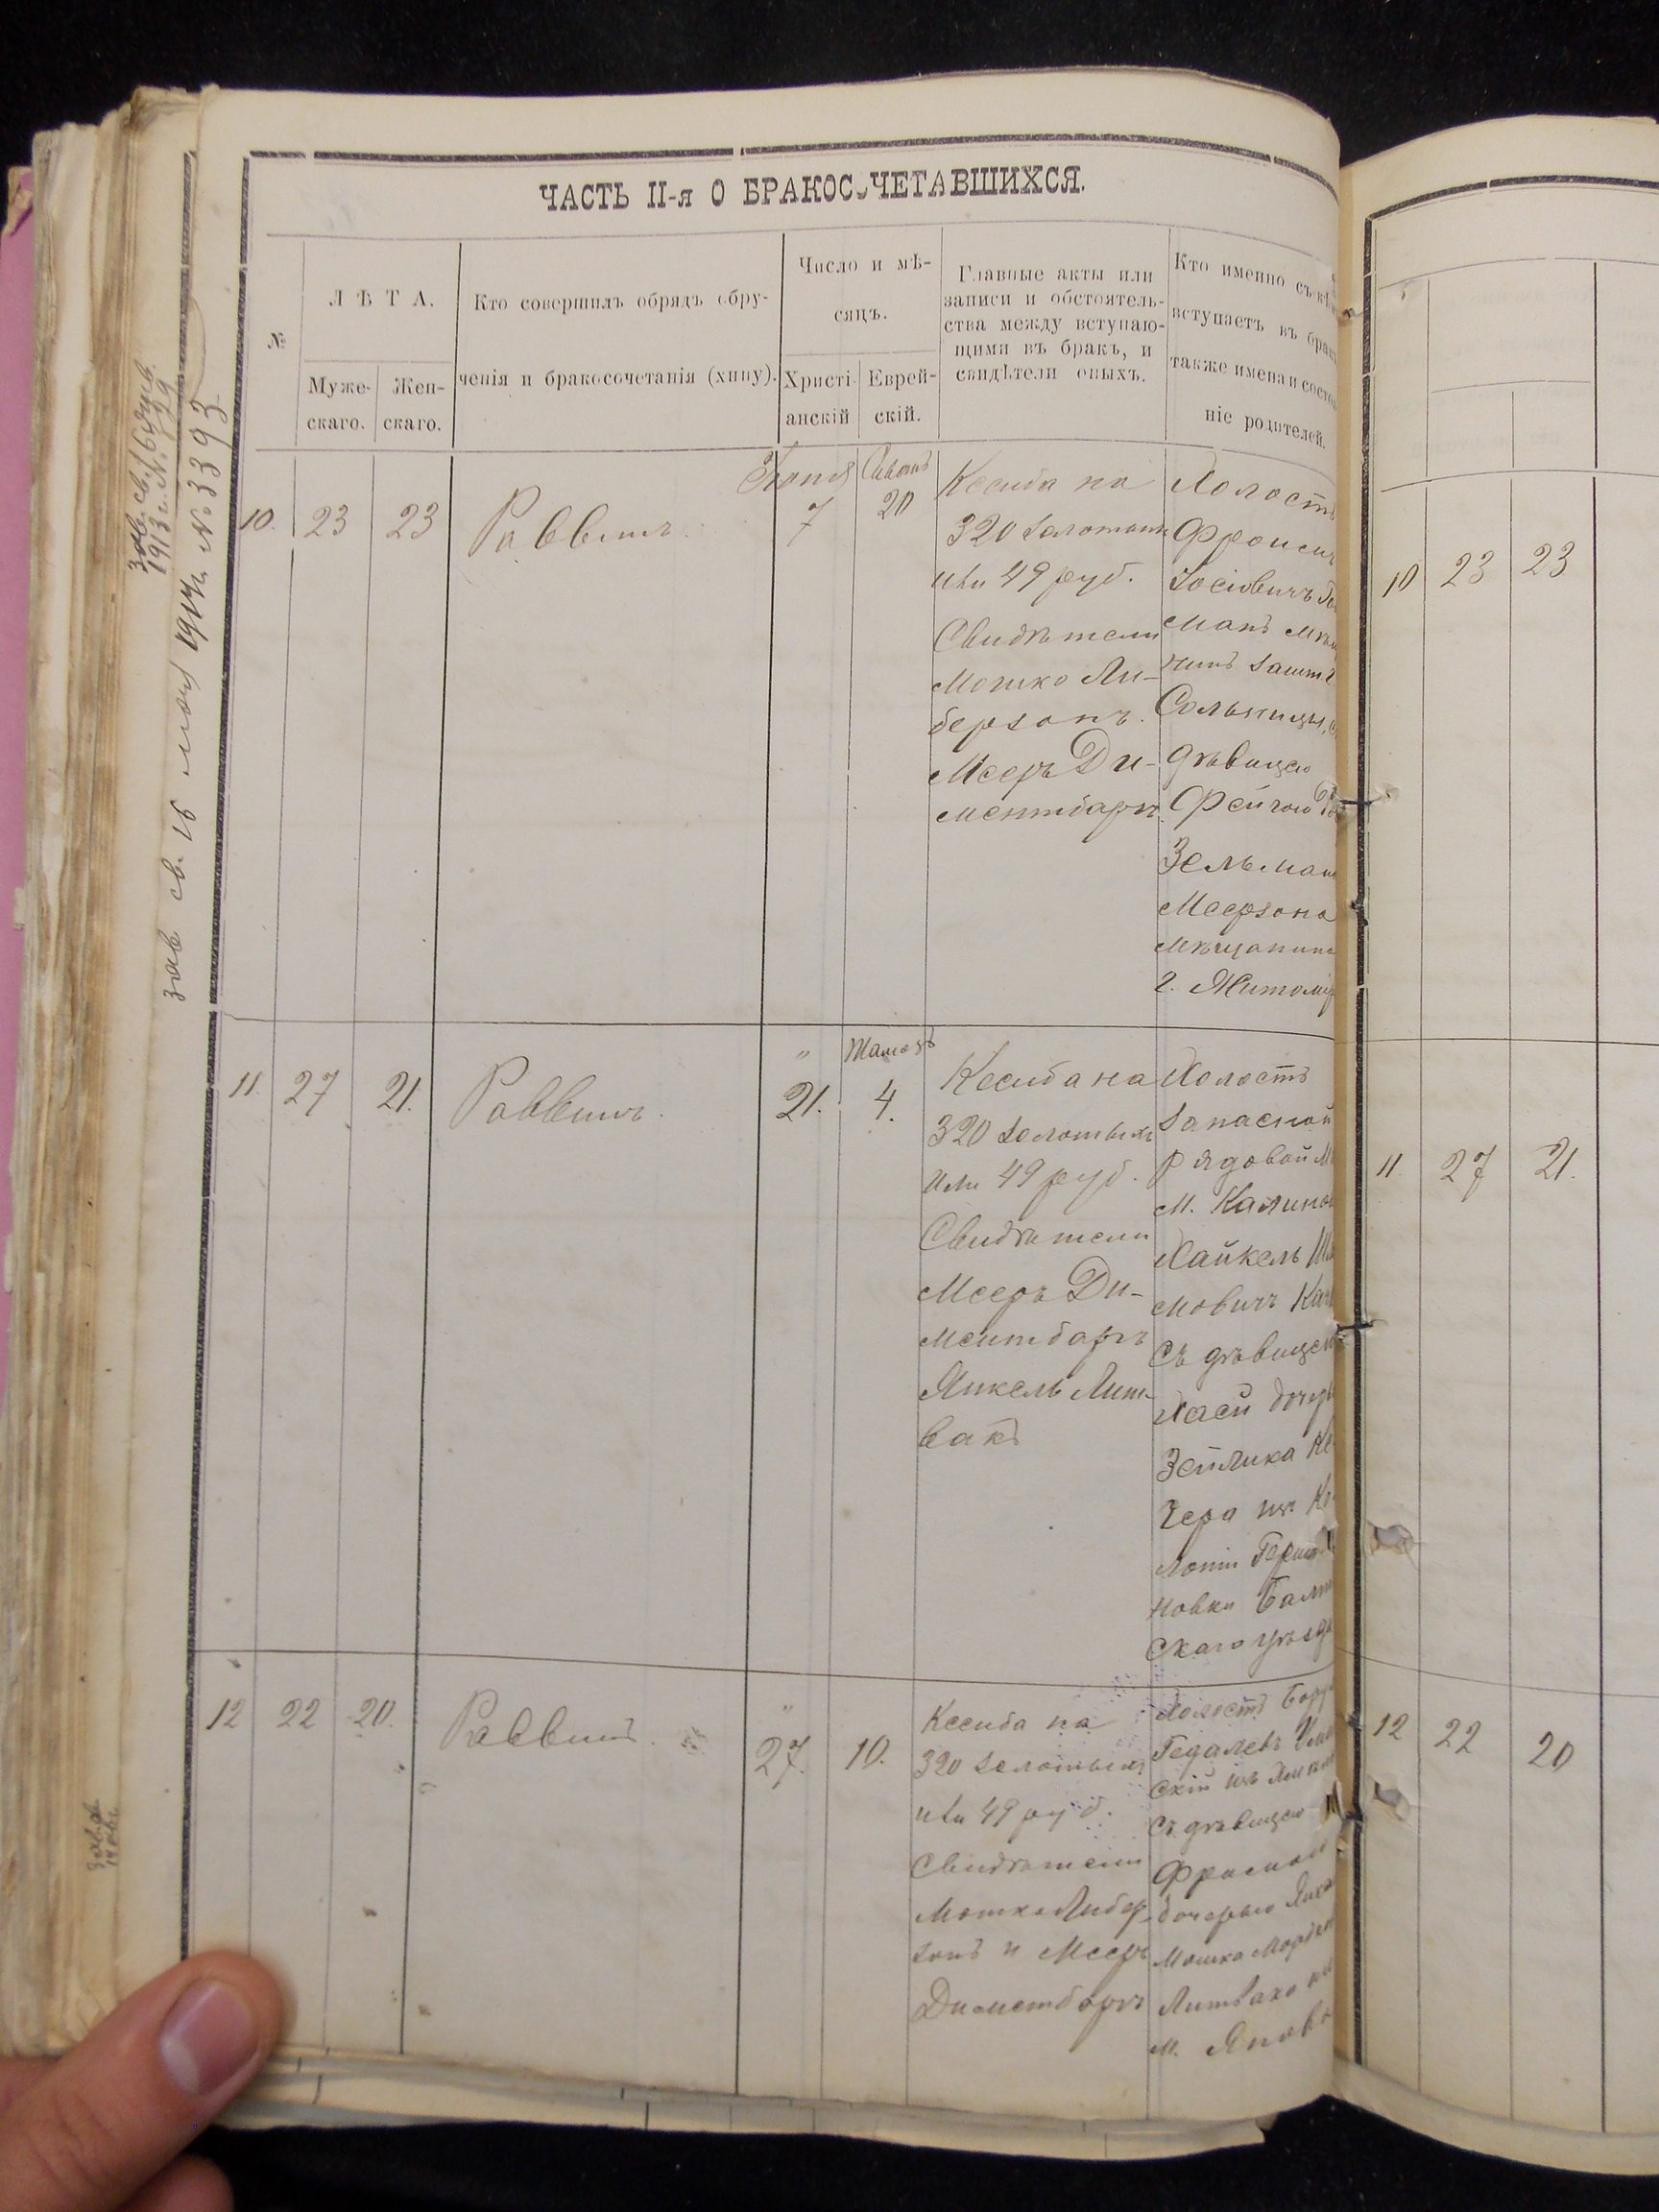 ЧАСТЬ II-я О БРАКОСОЧЕТАВШИХСЯ.
№
ЛѢТА.
Муже-
скаго.
Жен-
скаго.
Кто совершилъ обрядъ обру-
ченія и бракосочетанія (хипу).
Число и мѣ-
сяцъ.
Христі
анскій
Еврей-
скій.
Главные акты или
записи и обстоятель-
ства между вступаю-
щими въ бракъ, и
свидѣтели оныхъ.
Кто именно съ кѣмъ
вступаетъ въ бракъ
также имена и состоя
ніе родителей.
1913 г. №
зав св. 16 1914 г. № 3393
10.
23
23
Раввинъ.
Іюня
7
Сивонъ
20
Ксиба на
320 золотыхъ
или 49 руб.
Свидѣтели
Мошко Ли-
берзонъ.
Мееръ Ди-
ментбаръ.
Холостъ
Фроимъ
Іосіовичъ
манъ
нинъ
Сольницы,
дѣвицею
Фейгою
Зельмана
Меерзона
мѣщанина
г. Житомір
11.
27
21.
Раввинъ.
"
21.
Тамозъ
4.
Ксиба на
320 золотыхъ
или 49 руб.
Свидѣтели
Мееръ Ди-
ментбаръ
Янкель Лит-
вакъ
Холостъ
запасной
рядовой
м. Калинов
Хайкель
мовичъ
съ дѣвицею
Хаей дочерью
Зейлика
чера изъ
лоніи
новки Балт
скаго уѣзда
12
22
20.
Раввинъ.
"
27.
10.
Ксиба на
320 золотыхъ
или 49 руб.
Свидѣтели
Мошко Либер-
зонъ и Мееръ
Диментбаръ
Холостъ
Гедалевъ
скій изъ
съ дѣвицею
дочерью
Мошка
Литвака
м. Яновъ
10
23
23
11.
27
21.
12
22
20